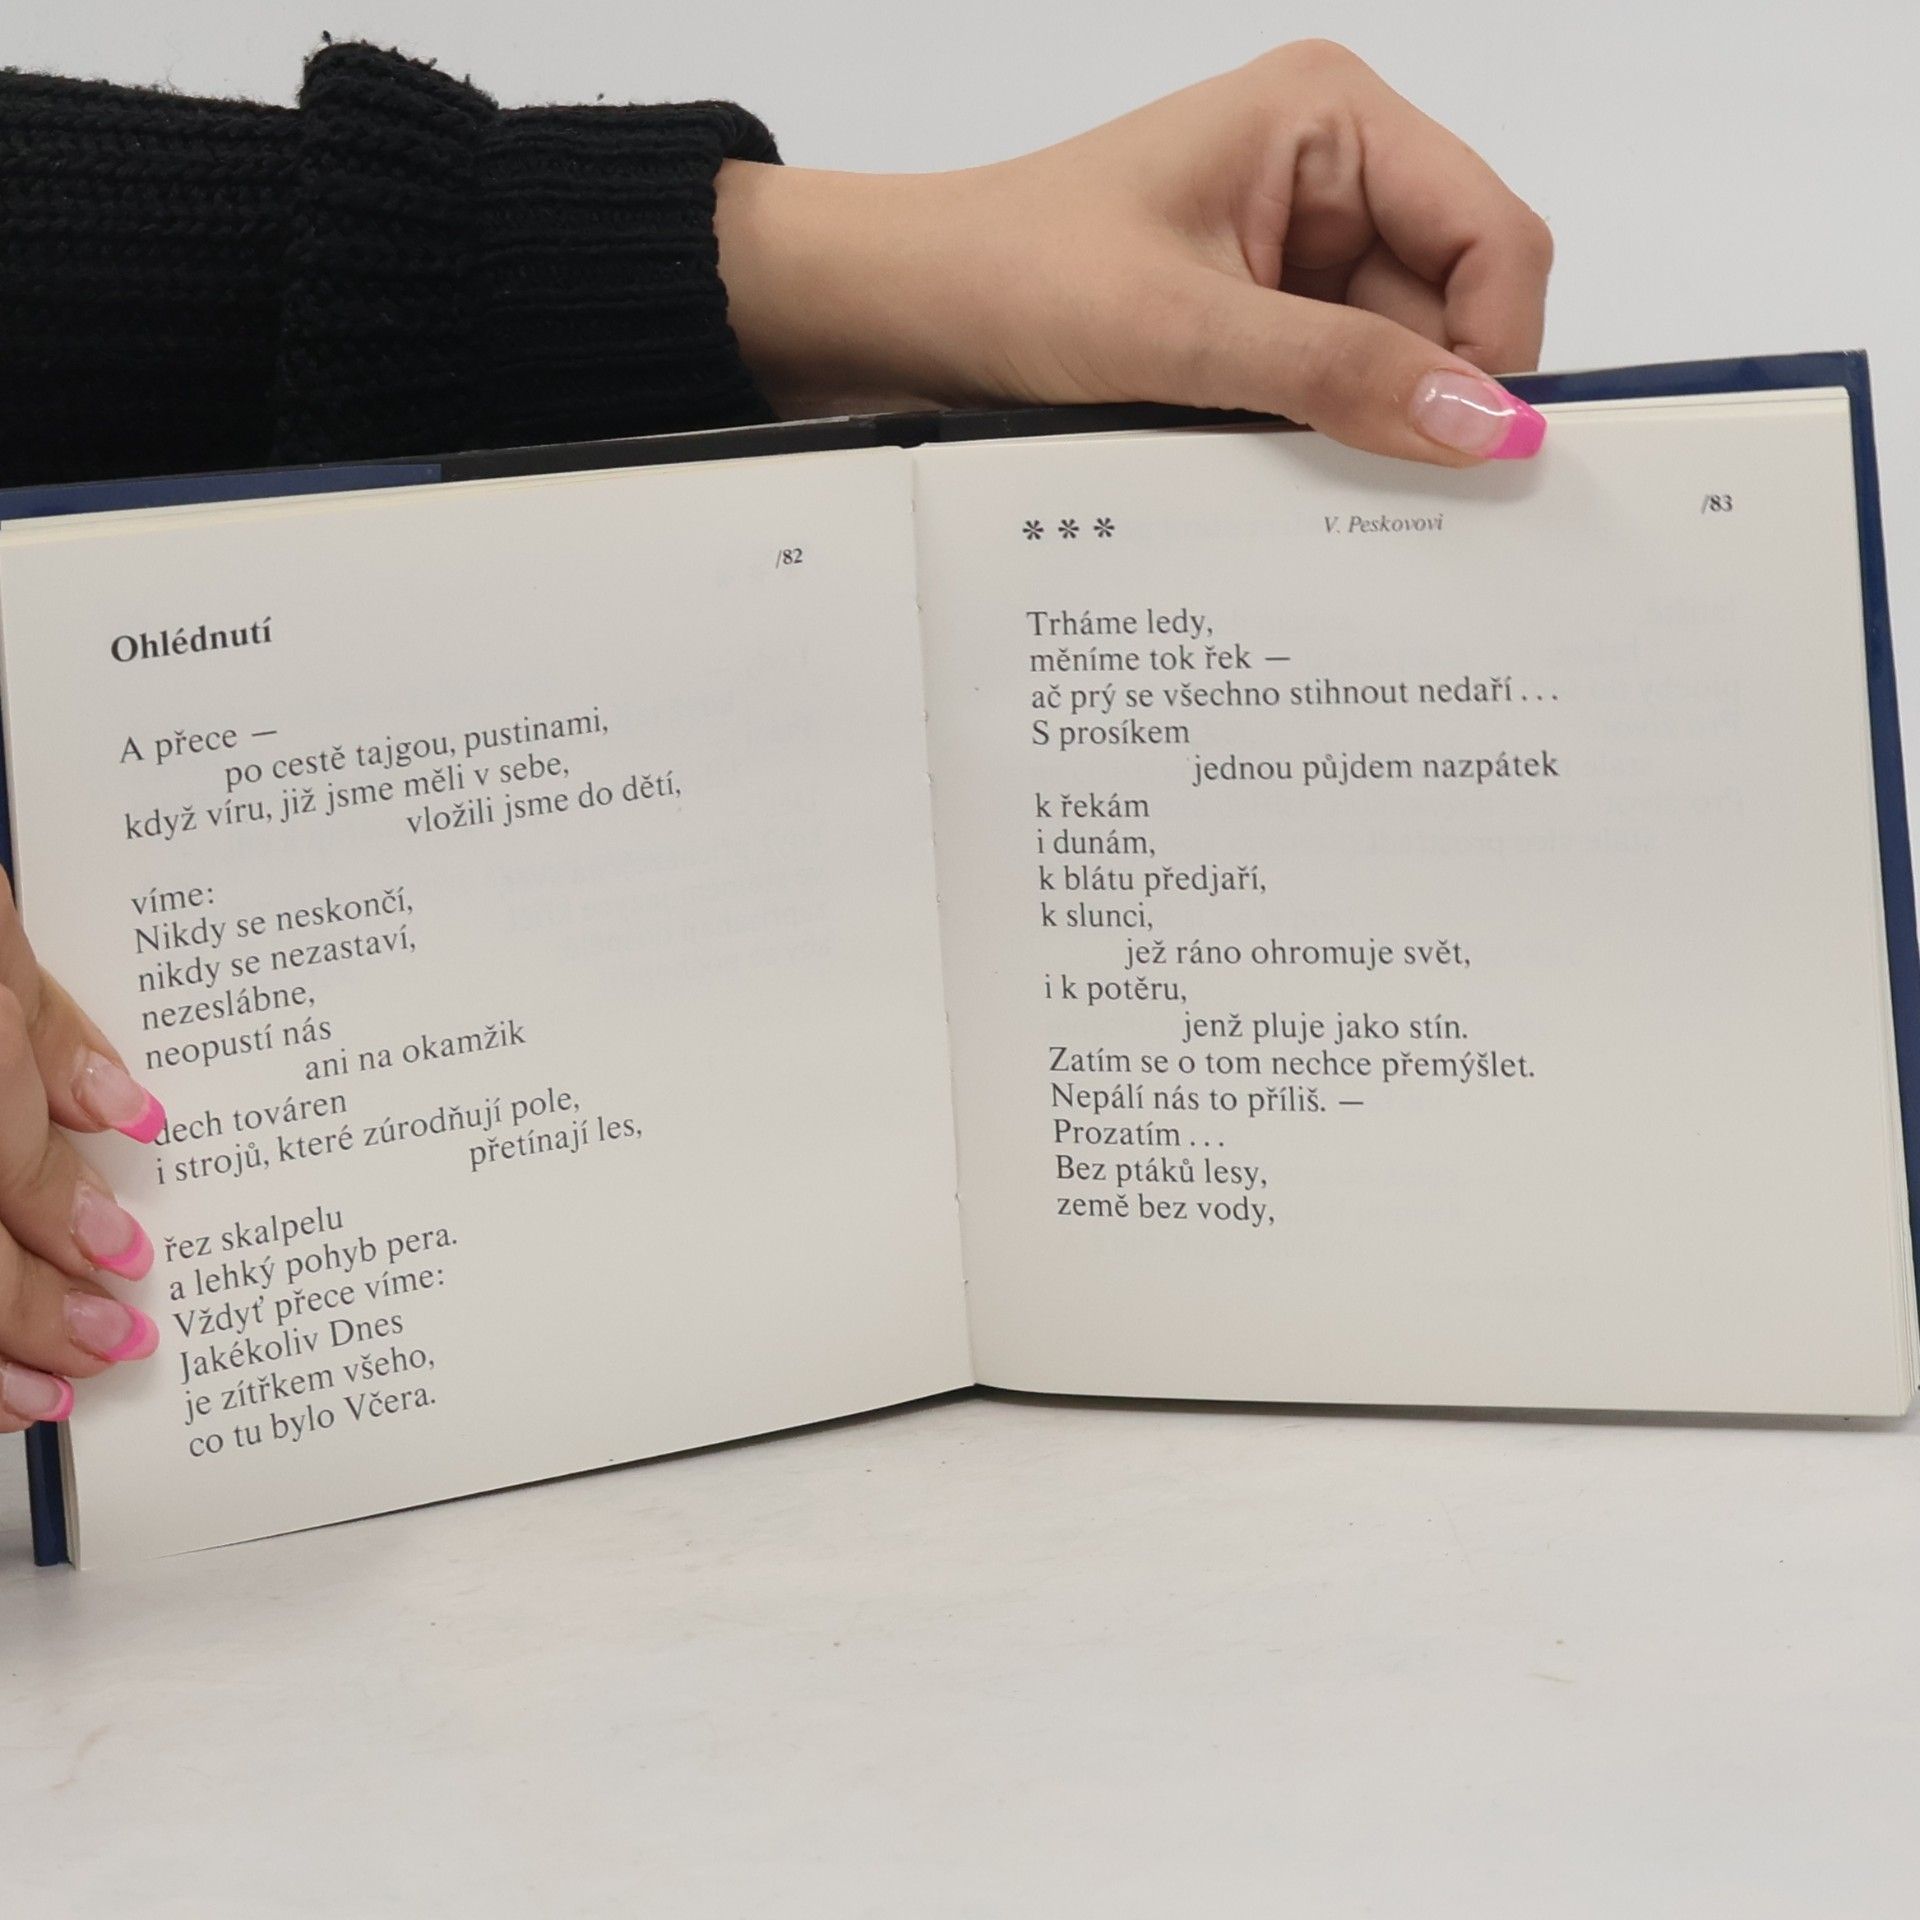 /82
Ohlédnutí
A přece —
po cestě tajgou, pustinami,
když víru, již jsme měli v sebe,
vložili jsme do dětí,
víme:
Nikdy se neskončí,
nikdy se nezastaví,
nezeslábne,
neopustí nás
ani na okamžik
dech továren
i strojů, které zúrodňují pole,
přetínají les,
řez skalpelu
a lehký pohyb pera.
Vždyť přece víme:
Jakékoliv Dnes
je zítřkem všeho,
co tu bylo Včera.
/83
* * * V. Peskovovi
Trháme ledy,
měníme tok řek —
ač prý se všechno stihnout nedaří...
S prosíkem
jednou půjdem nazpátek
k řekám
i dunám,
k blátu předjaří,
k slunci,
jež ráno ohromuje svět,
i k potěru,
jenž pluje jako stín.
Zatím se o tom nechce přemýšlet.
Nepálí nás to příliš. —
Prozatím...
Bez ptáků lesy,
země bez vody,